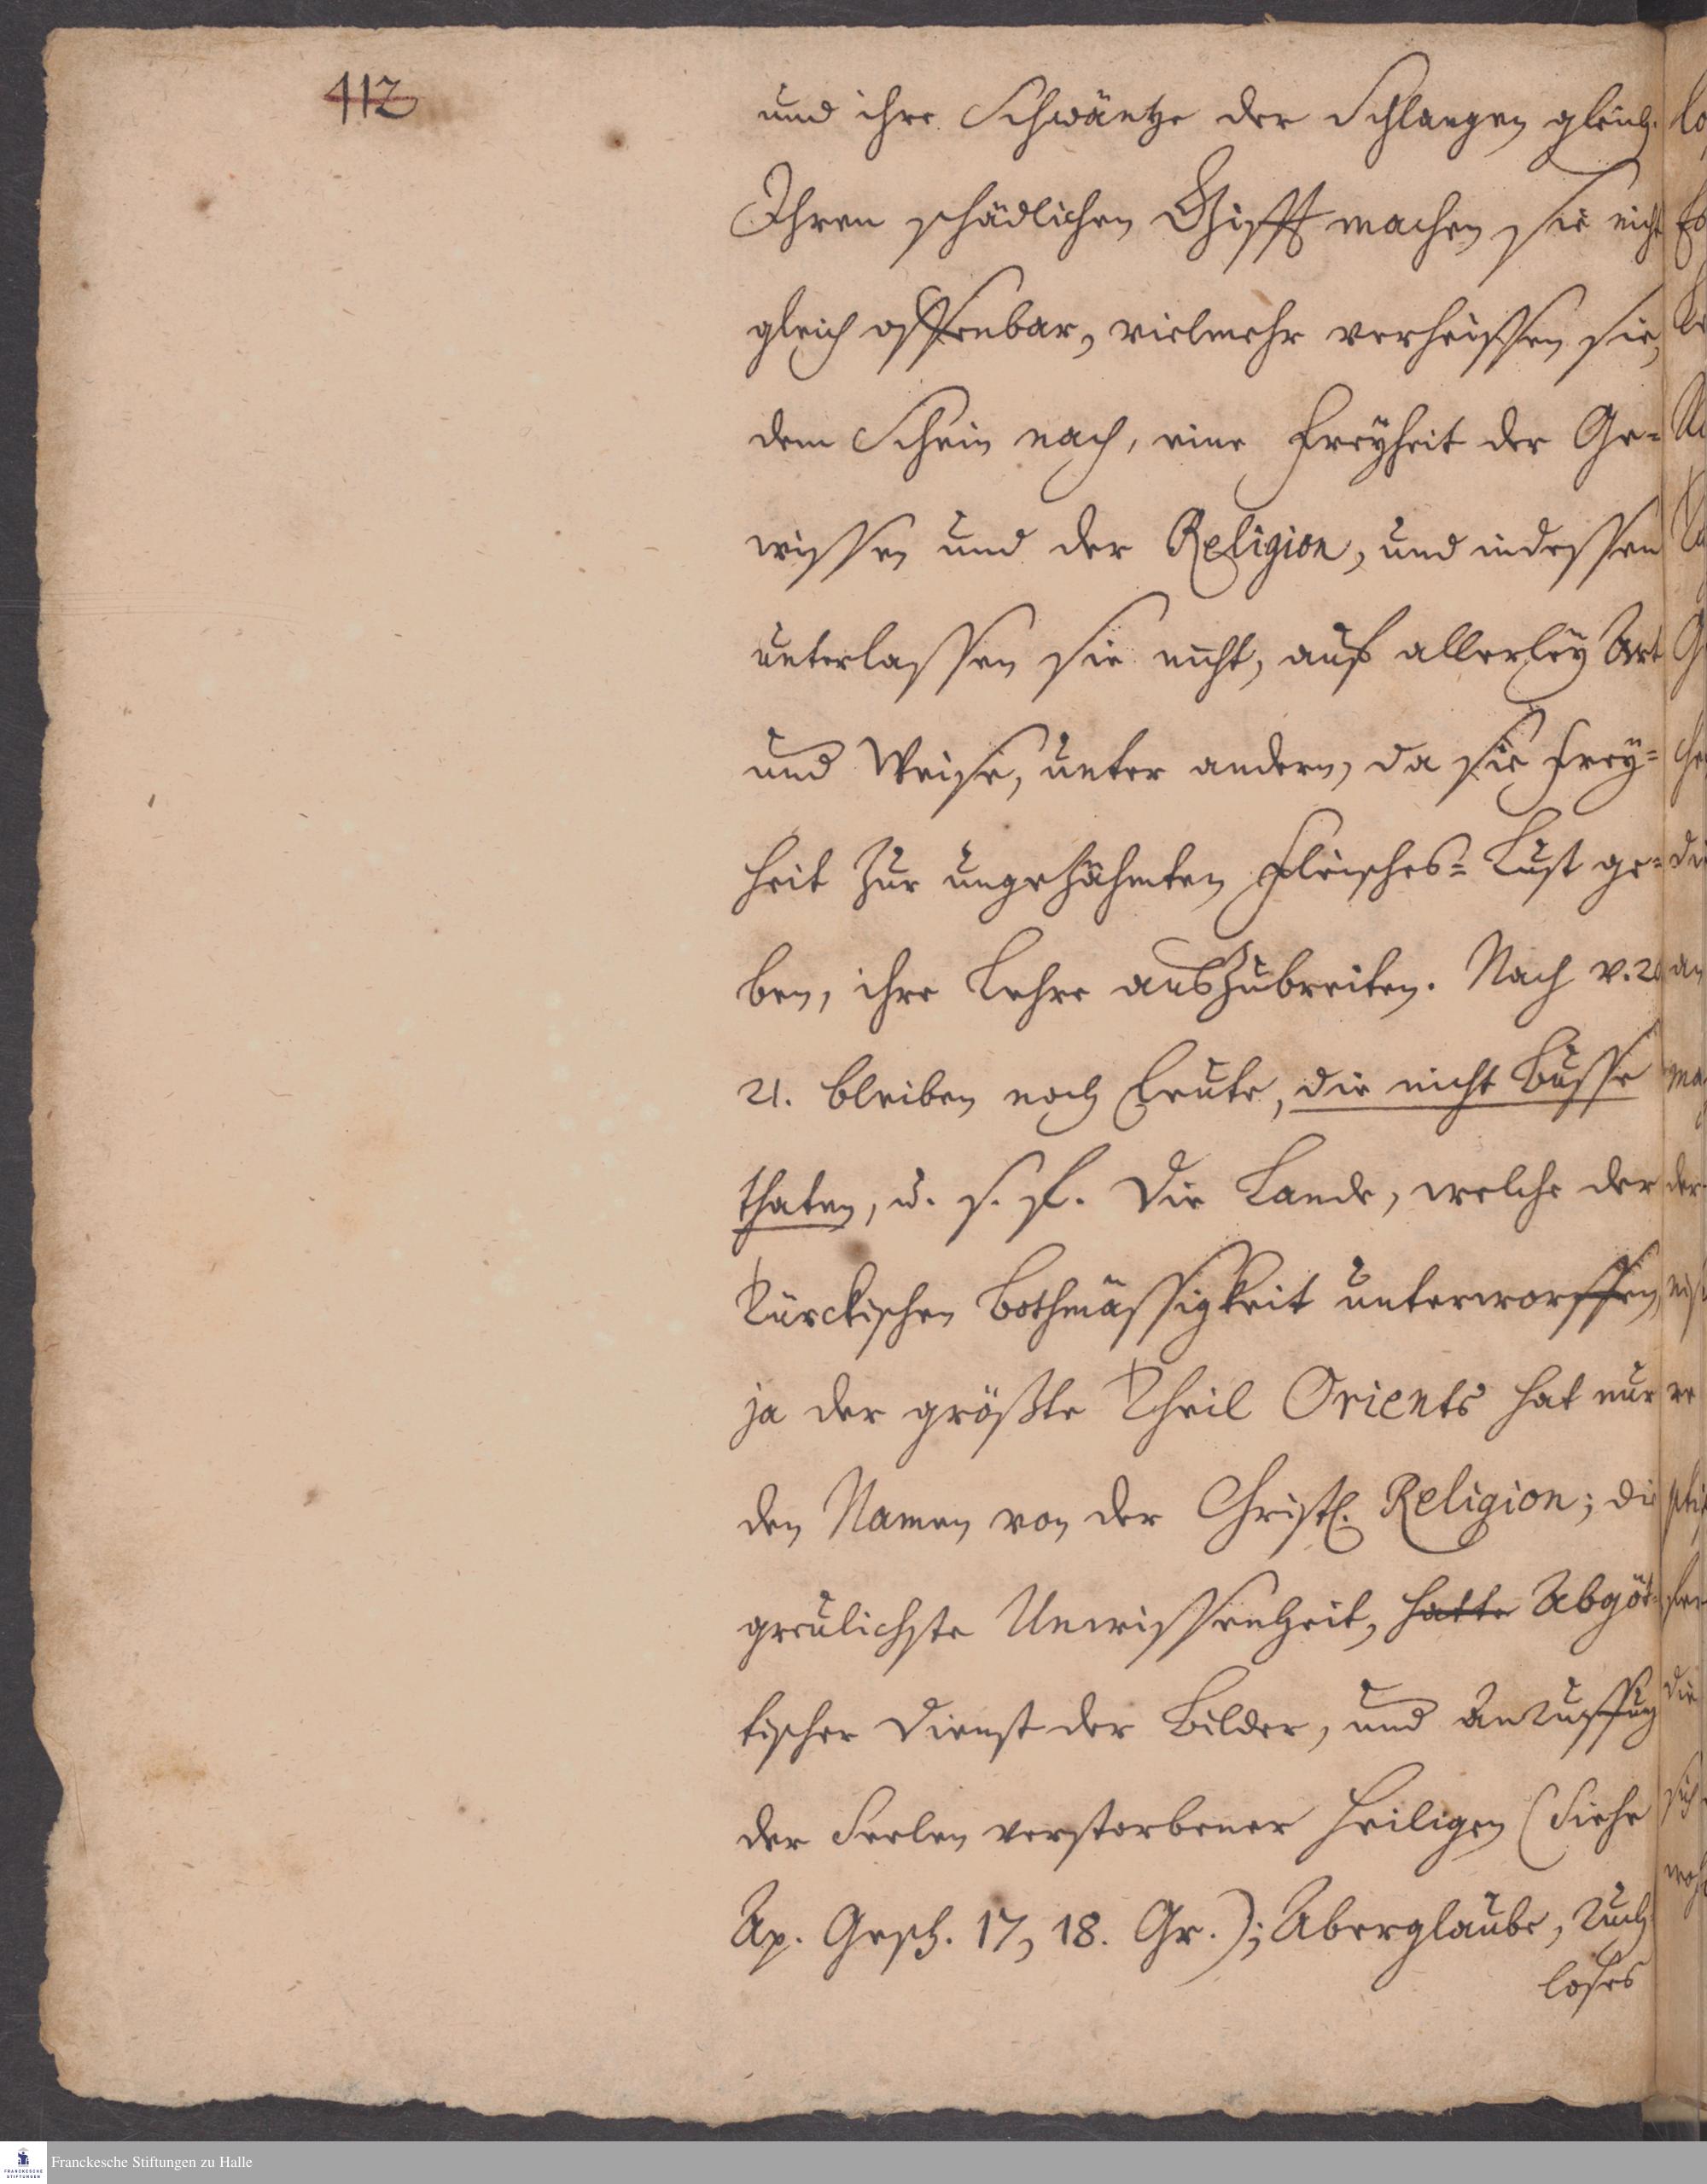 412
und ihre Schwäntze der Schlangen gleich.
Ihren schädlichen Gifft machen sie nicht
gleich offenbar, vielmehr verheissen sie,
dem Schein nach, eine Freyheit der Ge-
wissen und der Religion, und indessen
unterlassen sie nicht, auf allerley Art
und Weise, unter andern, da sie Frey-
heit zur ungezähmten Fleisches-Lust ge-
ben, ihre Lehre auszubreiten. Nach v. 20
21. bleiben noch Leute, die nicht Busse
thaten, u. s. f. Die Lande, welche der
Türckischen Bothmässigkeit unterworffen,
ja der größte Theil Orients hat nur
den Namen von der Christl. Religion; die
greulichste Unwissenheit, hatte Abgöt-
tischer Dienst der Bilder, und Anruffung
der Seelen verstorbener Heiligen (Siehe
Ap. Gesch. 17, 18. Gr.); Aberglaube, Ruch-
loses
Franckesche Stiftungen zu Halle